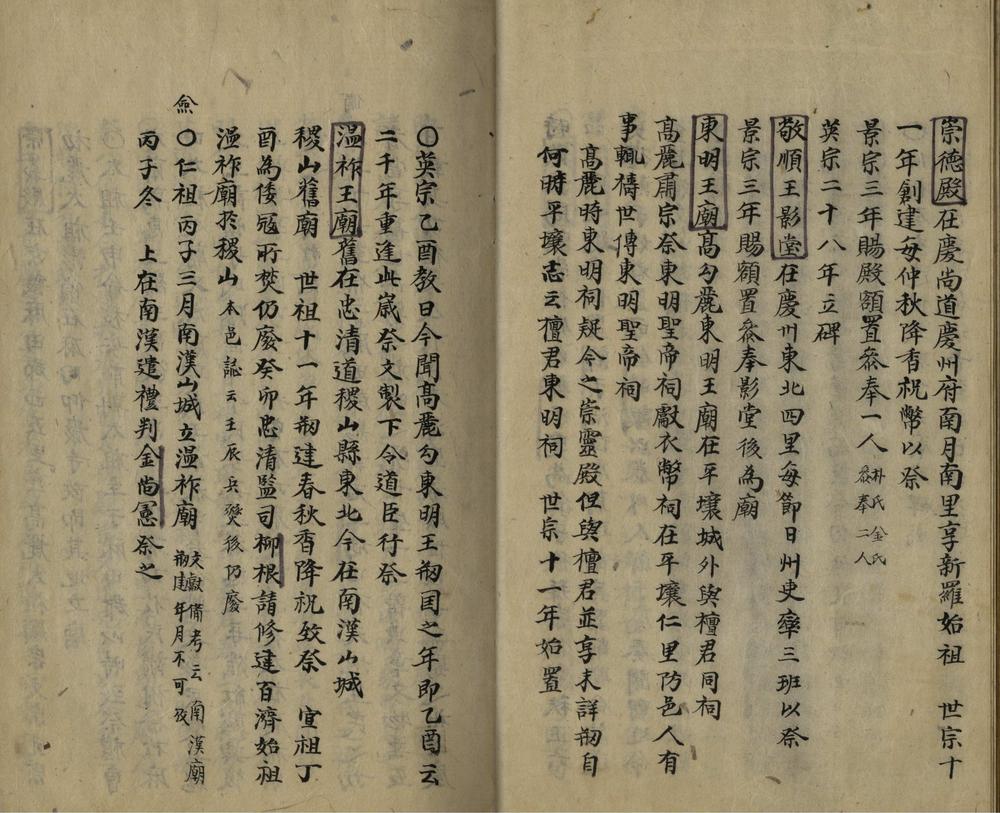 崇德殿在慶尙道慶州府南月南里享新羅始祖 世宗十
一年創建每仲秋降香祝幣以祭
景宗三年賜殿額置叅奉一人朴氏金氏叅奉二人
英宗二十八年立碑
敬順王影堂在慶州東北四里每節日州吏率三班以祭
景宗三年賜額置叅奉影堂後為廟
東明王廟高勾麗東明王廟在平壤城外與檀君同祠
高麗肅宗祭東明聖帝祠獻衣幣祠在平壤仁里防邑人有
事輒禱世傳東明聖帝祠
高麗時東明祠疑今之崇靈殿但與檀君並享未詳刱自
何時平壤志云檀君東明祠 世宗十一年始置
〇英宗乙酉敎曰今聞高麗勾東明王刱囯之年即乙酉云
二千年重逢此歲祭文製下令道臣行祭
温祚王廟舊在忠清道稷山縣東北今在南漢山城
稷山舊廟 世祖十一年刱建春秋香降祝致祭 宣祖丁
酉為倭冦所焚仍廢癸卯忠清監司柳根請修建百濟始祖
温祚廟於稷山本邑誌云壬辰兵燹後仍廢
〇仁祖丙子三月南漢山城立温祚廟文獻備考云南漢廟刱建年月不可攷
丙子冬 上在南漢遣禮判金尙憲祭之